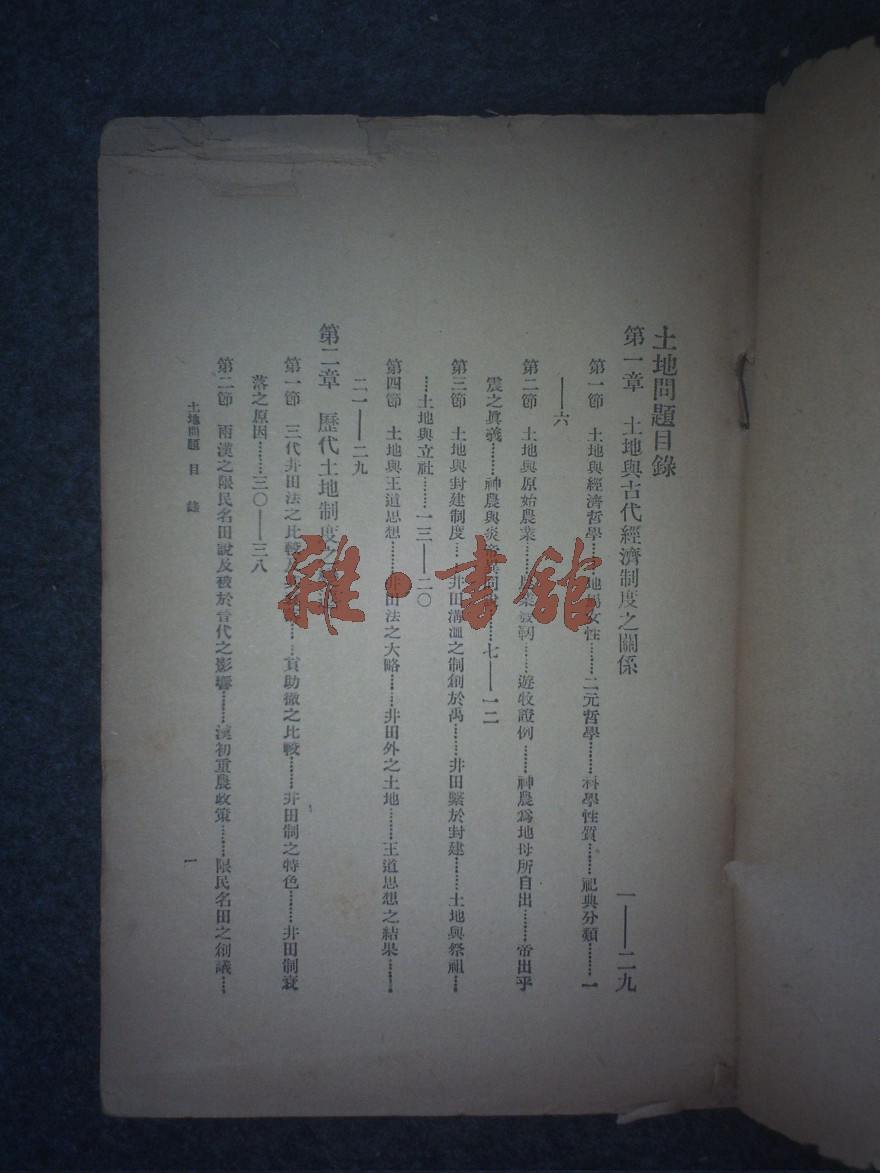 土地問題目錄
第一章 土地與古代經濟制度之關係 一——二九
第一節 土地與經濟哲學……地場女性……二元哲學……科學性質……祀典分類……一
——六
第二節 土地與原始農業……農業發軔……遊牧證例……神農為地母所自出……帝出乎
震之眞義……神農與炎帝異同說……七——一二
第三節 土地與封建制度……井田溝洫之制創於禹……井田繫於封建……土地與祭祖……
……土地與立社……一三——二〇
第四節 土地與王道思想……井田法之大略……井田外之土地……王道思想之結果……
二一——二九
第二章 歷代土地制度之
第一節 三代井田法之比較及……貢助徹之比較……井田制之特色……井田制衰
落之原因……三〇——三八
第二節 兩漢之限民名田說及被於晉代之影響……漢初重農政策……限民名田之創議……
土地問題 目錄 一
雜·書館